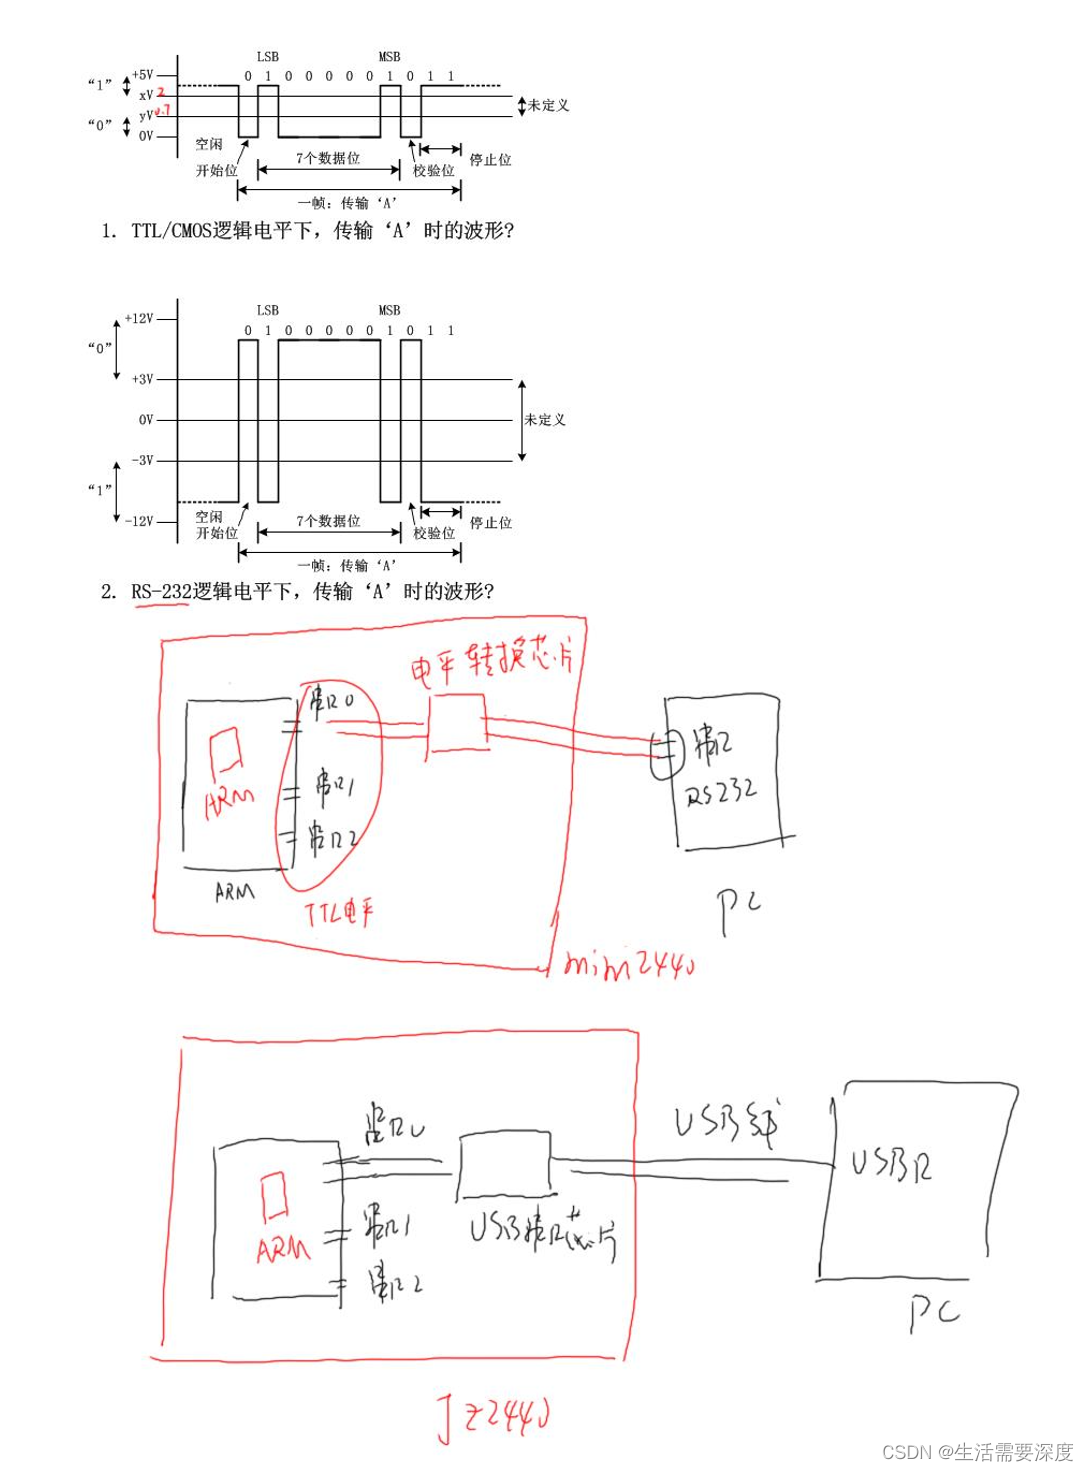 LSB MSB
+5V 0 1 0 0 0 0 0 1 0 1 1
“1”
xV 2
yV 0.7
未定义
“0”
0V
空闲
开始位 7个数据位 校验位 停止位
一帧: 传输‘A’
1. TTL/CMOS逻辑电平下, 传输‘A’时的波形?
LSB MSB
+12V 0 1 0 0 0 0 0 1 0 1 1
“0”
+3V
0V 未定义
-3V
“1”
-12V
空闲
开始位 7个数据位 校验位 停止位
一帧: 传输‘A’
2. RS-232逻辑电平下, 传输‘A’时的波形?
电平转换芯片
串口0
串口
ARM 串口1 RS232
串口2
ARM
TTL电平
PC
mini2440
串口0 USB线
USB口
USB串口芯片
ARM 串口1
串口2
PC
JZ2440
CSDN @生活需要深度